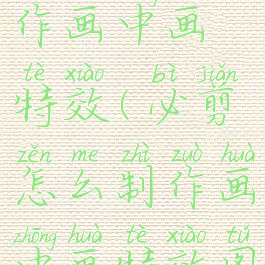 作画中画
tè xiào bì jiǎn
特效(必剪
zěn me zhì zuò huà
怎么制作画
zhōng huà tè xiào tú
中画特效图